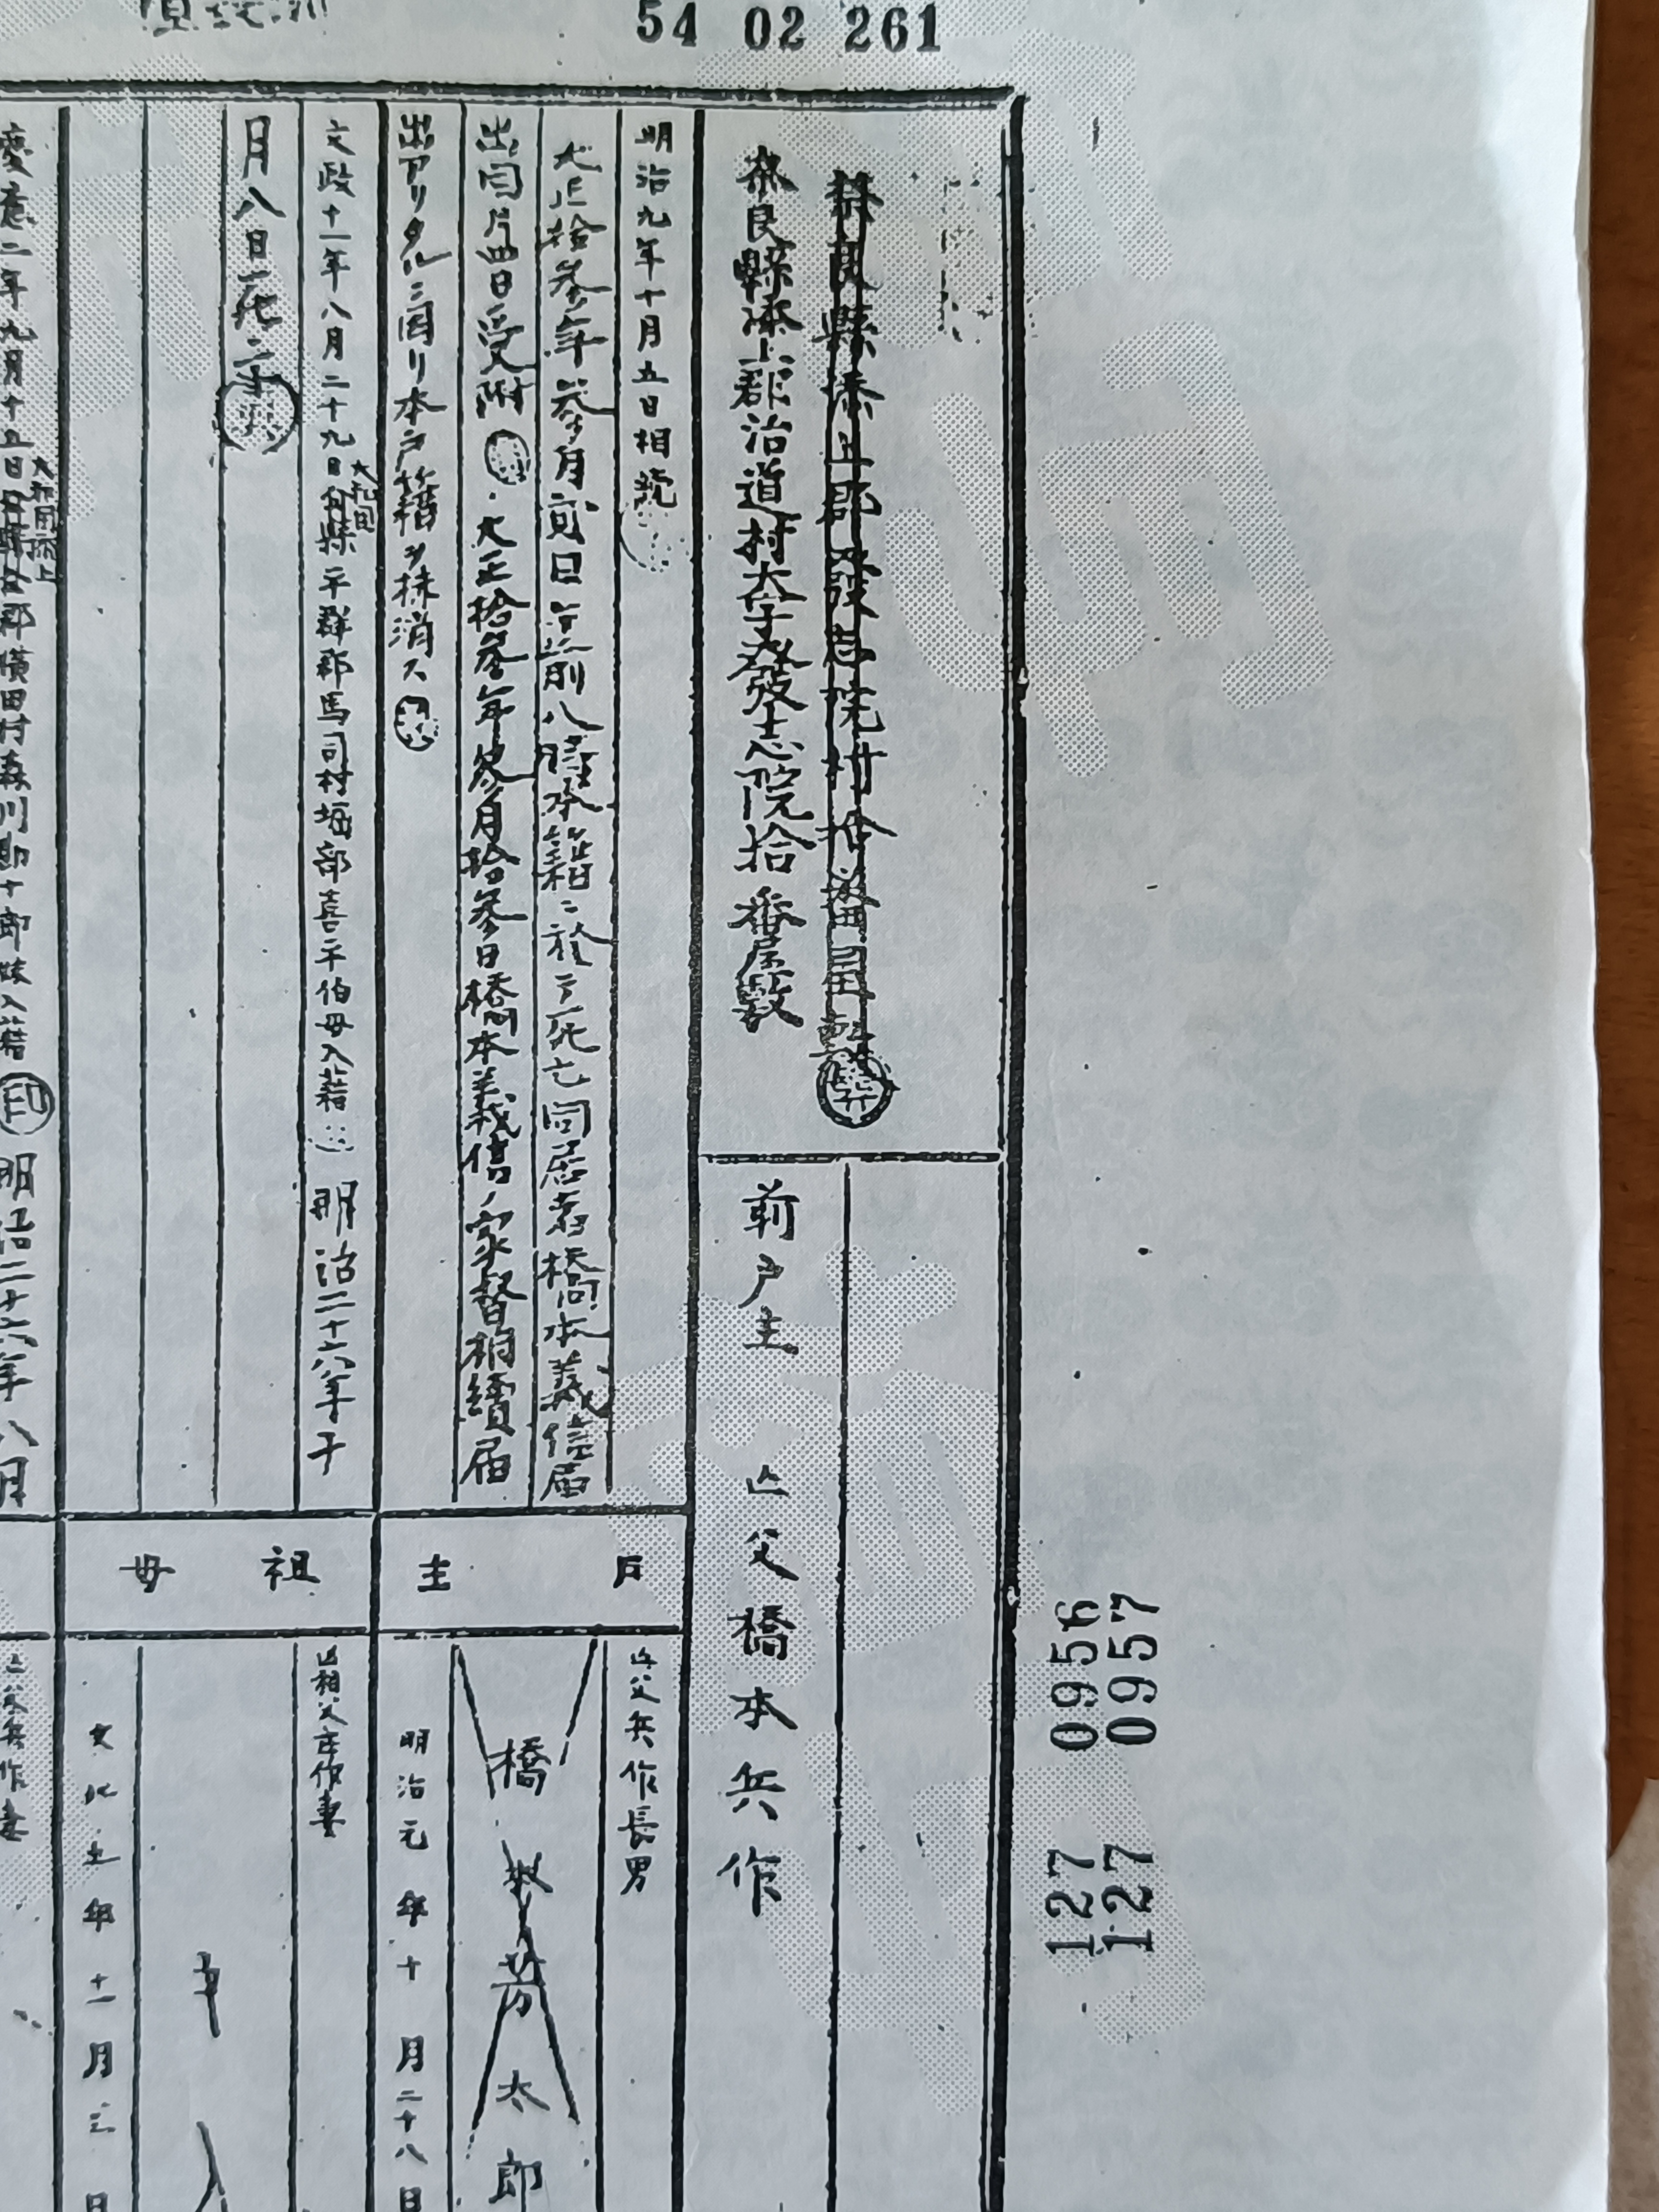 54 02 261
奈良縣添上郡発志院村拾番屋敷
奈良縣添上郡治道村大字発志院拾番屋敷
前戸主 亡父 橋本兵作
明治九年十月五日相続
大正拾参年参月貳日午前八時本籍ニ於テ死亡同居者橋本義信届
出同月四日受附 大正拾参年参月拾参日橋本義信ノ家督相續届
出アリタルニ因リ本戸籍ヲ抹消ス
戸主
亡父兵作長男
橋本芳太郎
明治元年十月二十八日
文政十一年八月二十九日
大和国
平群郡馬司村堀部喜平伯母入籍 明治二十六年十
月八日死亡
祖母
亡祖父庄作妻
文化五年十一月三日
慶應二年九月十五日
大和国添上
郡横田村森川勘十郎妹入籍 印 明治二十六年八月
亡父兵作妻
0956 127
0957 127